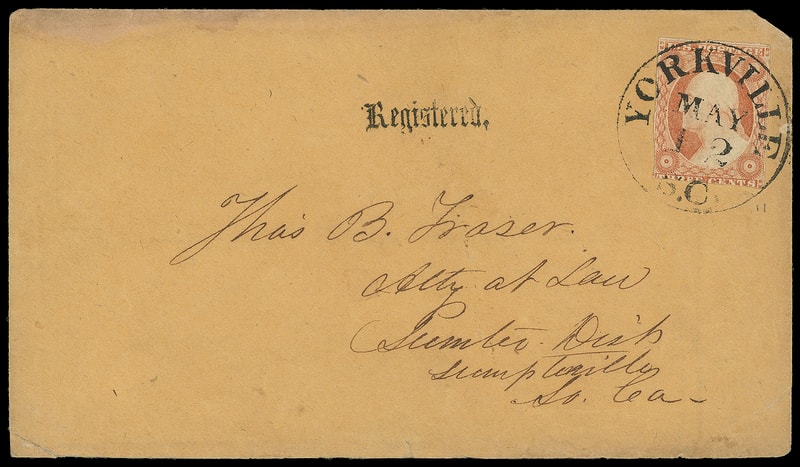 U.S. POSTAGE
YORKVILLE
MAY
12
S.C.
THREE CENTS
Registered.
Thos B. Fraser.
Atty at Law
Sumter Dist
Sumpterville
So. Ca-